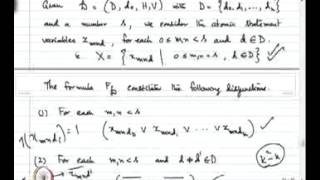 Given 𝔇 = (D, d₀, H, V) with D = {d₀, d₁, ..., dₖ}
and a number s, we consider the atomic statement
variables x_mnd, for each 0 ≤ m,n < s and d ∈ D.
X = { x_mnd | 0 ≤ m,n < s, d ∈ D }
The formula F_𝔇 constitutes the following disjunctions.
(1) For each m,n < s
(x_mnd) = 1 (x_mnd₀ ∨ x_mnd₁ ∨ ... ∨ x_mndₖ)
(2) For each m,n < s and d ≠ d' ∈ D
k² - k